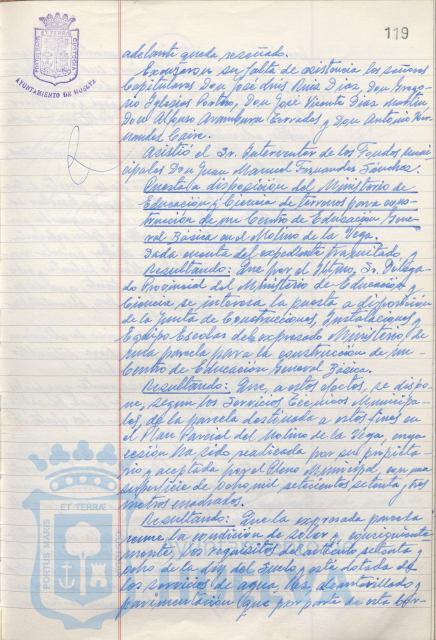 119
PORTUS MARIS ET TERRAE CUSTODIA
AYUNTAMIENTO DE HUELVA
adelante queda reseñado.
Excusaron su falta de asistencia los señores
Capitulares Don José Luis Ruiz Díaz, Don Grego-
rio Iglesias Don José Vicente Díaz Martín,
Don Alonso Aramburu Terrades y Don Antonio Her-
nandez Caire.
Asistió el Sr. Interventor de los Fondos Muni-
cipales Don Juan Manuel Fernandez Sánchez.
Puesta a disposición del Ministerio de
Educación y Ciencia de terrenos para cons-
trucción de un Centro de Educación Gene-
ral Básica en el Molino de la Vega.
Dada cuenta del expediente tramitado, y
Resultando: Que por el Iltmo. Sr. Delega-
do Provincial del Ministerio de Educación y
Ciencia se interesa la puesta a disposición
de la Junta de Construcciones, Instalaciones y
Equipo Escolar del expresado Ministerio, de
una parcela para la construcción de un
Centro de Educación General Básica.
Resultando: Que, a estos efectos, se dispo-
ne, según los Servicios Técnicos Municipa-
les, de la parcela destinada a estos fines en
el Plan Parcial del Molino de la Vega, cuya
cesión ha sido realizada por su propieta-
rio y aceptada por el Pleno Municipal, con una
superficie de ocho mil setecientos setenta y tres
metros cuadrados.
Resultando: Que la expresada parcela
reune la condición de solar y consiguiente-
mente, los requisitos del artículo setenta y
ocho de la Ley del Suelo y está dotada de
los servicios de agua, luz, alcantarillado y
pavimentación que por parte de esta Cor-
PORTUS MARIS ET TERRAE